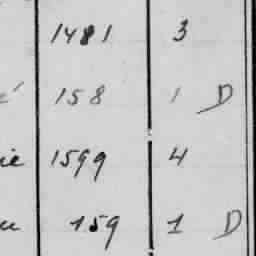 1481 3
é 158 1 D
ie 1599 4
u 159 1 D